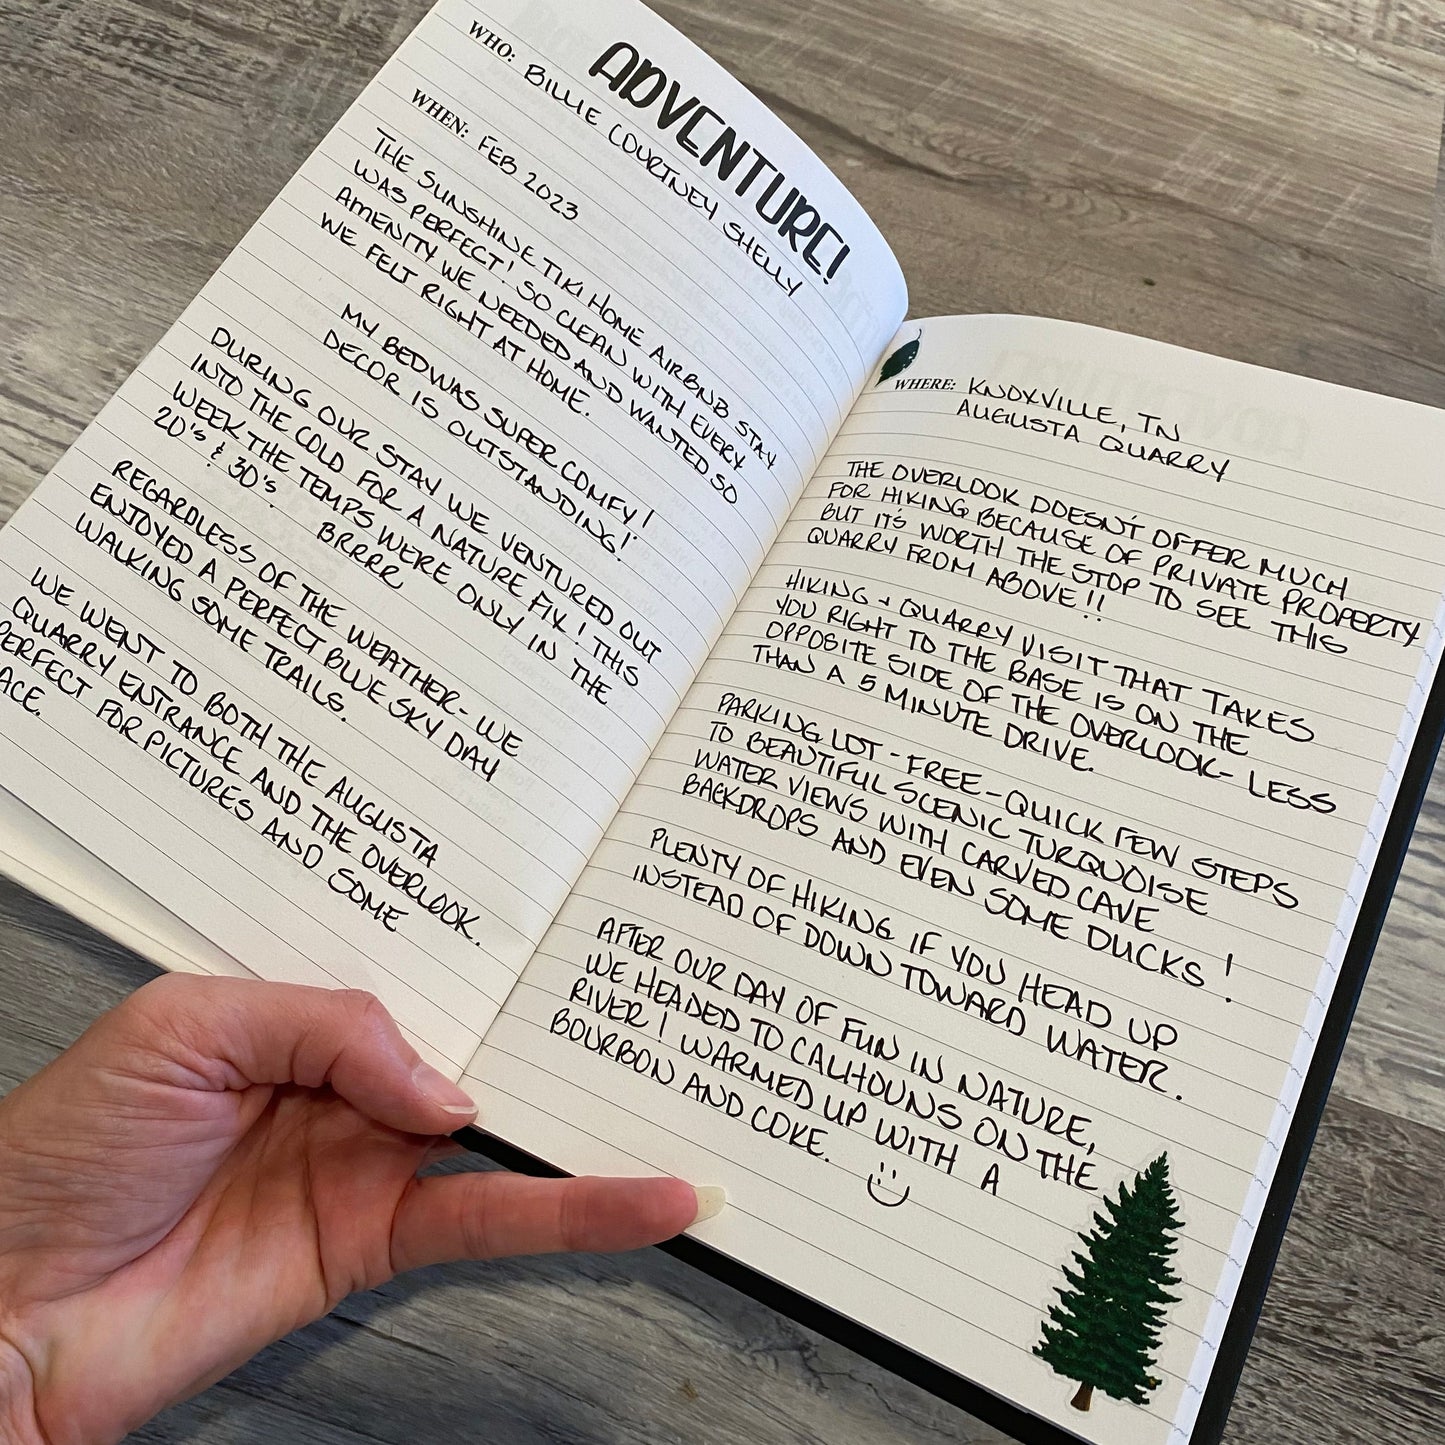 ADVENTURE!
WHO: BILLIE COURTNEY SHELLY
WHEN: FEB 2023
THE SUNSHINE TIKI HOME AIRBNB STAY
WAS PERFECT! SO CLEAN WITH EVERY
AMENITY WE NEEDED AND WANTED SO
WE FELT RIGHT AT HOME.
MY BED WAS SUPER COMFY!
DECOR IS OUTSTANDING!
DURING OUR STAY WE VENTURED OUT
INTO THE COLD FOR A NATURE FIX! THIS
WEEK THE TEMPS WERE ONLY IN THE
20's & 30's. BRRRR
REGARDLESS OF THE WEATHER- WE
ENJOYED A PERFECT BLUE SKY DAY
WALKING SOME TRAILS.
WE WENT TO BOTH THE AUGUSTA
QUARRY ENTRANCE AND THE OVERLOOK.
PERFECT FOR PICTURES AND SOME
ACE.
WHERE: KNOXVILLE, TN
AUGUSTA QUARRY
THE OVERLOOK DOESN'T OFFER MUCH
FOR HIKING BECAUSE OF PRIVATE PROPERTY
BUT IT'S WORTH THE STOP TO SEE THIS
QUARRY FROM ABOVE!!
HIKING + QUARRY VISIT THAT TAKES
YOU RIGHT TO THE BASE IS ON THE
OPPOSITE SIDE OF THE OVERLOOK- LESS
THAN A 5 MINUTE DRIVE.
PARKING LOT - FREE - QUICK FEW STEPS
TO BEAUTIFUL SCENIC TURQUOISE
WATER VIEWS WITH CARVED CAVE
BACKDROPS AND EVEN SOME DUCKS!
PLENTY OF HIKING IF YOU HEAD UP
INSTEAD OF DOWN TOWARD WATER.
AFTER OUR DAY OF FUN IN NATURE,
WE HEADED TO CALHOUNS ON THE
RIVER! WARMED UP WITH A
BOURBON AND COKE.